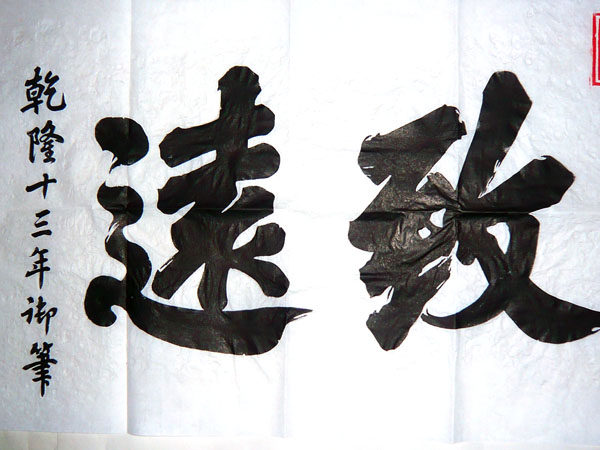 致遠
乾隆十三年御筆